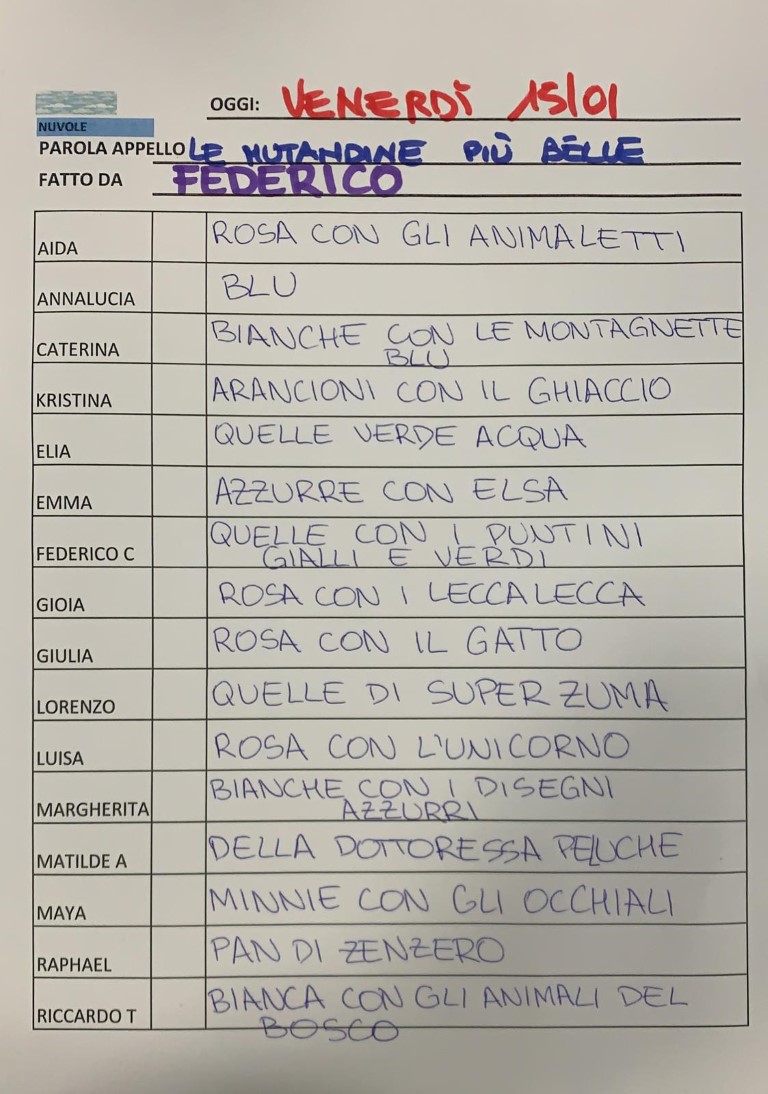 OGGI: VENERDÌ 15/01
NUVOLE
PAROLA APPELLO LE MUTANDINE PIÙ BELLE
FATTO DA FEDERICO
AIDA ROSA CON GLI ANIMALETTI
ANNALUCIA BLU
CATERINA BIANCHE CON LE MONTAGNETTE
BLU
KRISTINA ARANCIONI CON IL GHIACCIO
ELIA QUELLE VERDE ACQUA
EMMA AZZURRE CON ELSA
FEDERICO C QUELLE CON I PUNTINI
GIALLI E VERDI
GIOIA ROSA CON I LECCALECCA
GIULIA ROSA CON IL GATTO
LORENZO QUELLE DI SUPER ZUMA
LUISA ROSA CON L'UNICORNO
MARGHERITA BIANCHE CON I DISEGNI
AZZURRI
MATILDE A DELLA DOTTORESSA PELUCHE
MAYA MINNIE CON GLI OCCHIALI
RAPHAEL PAN DI ZENZERO
RICCARDO T BIANCA CON GLI ANIMALI DEL
BOSCO